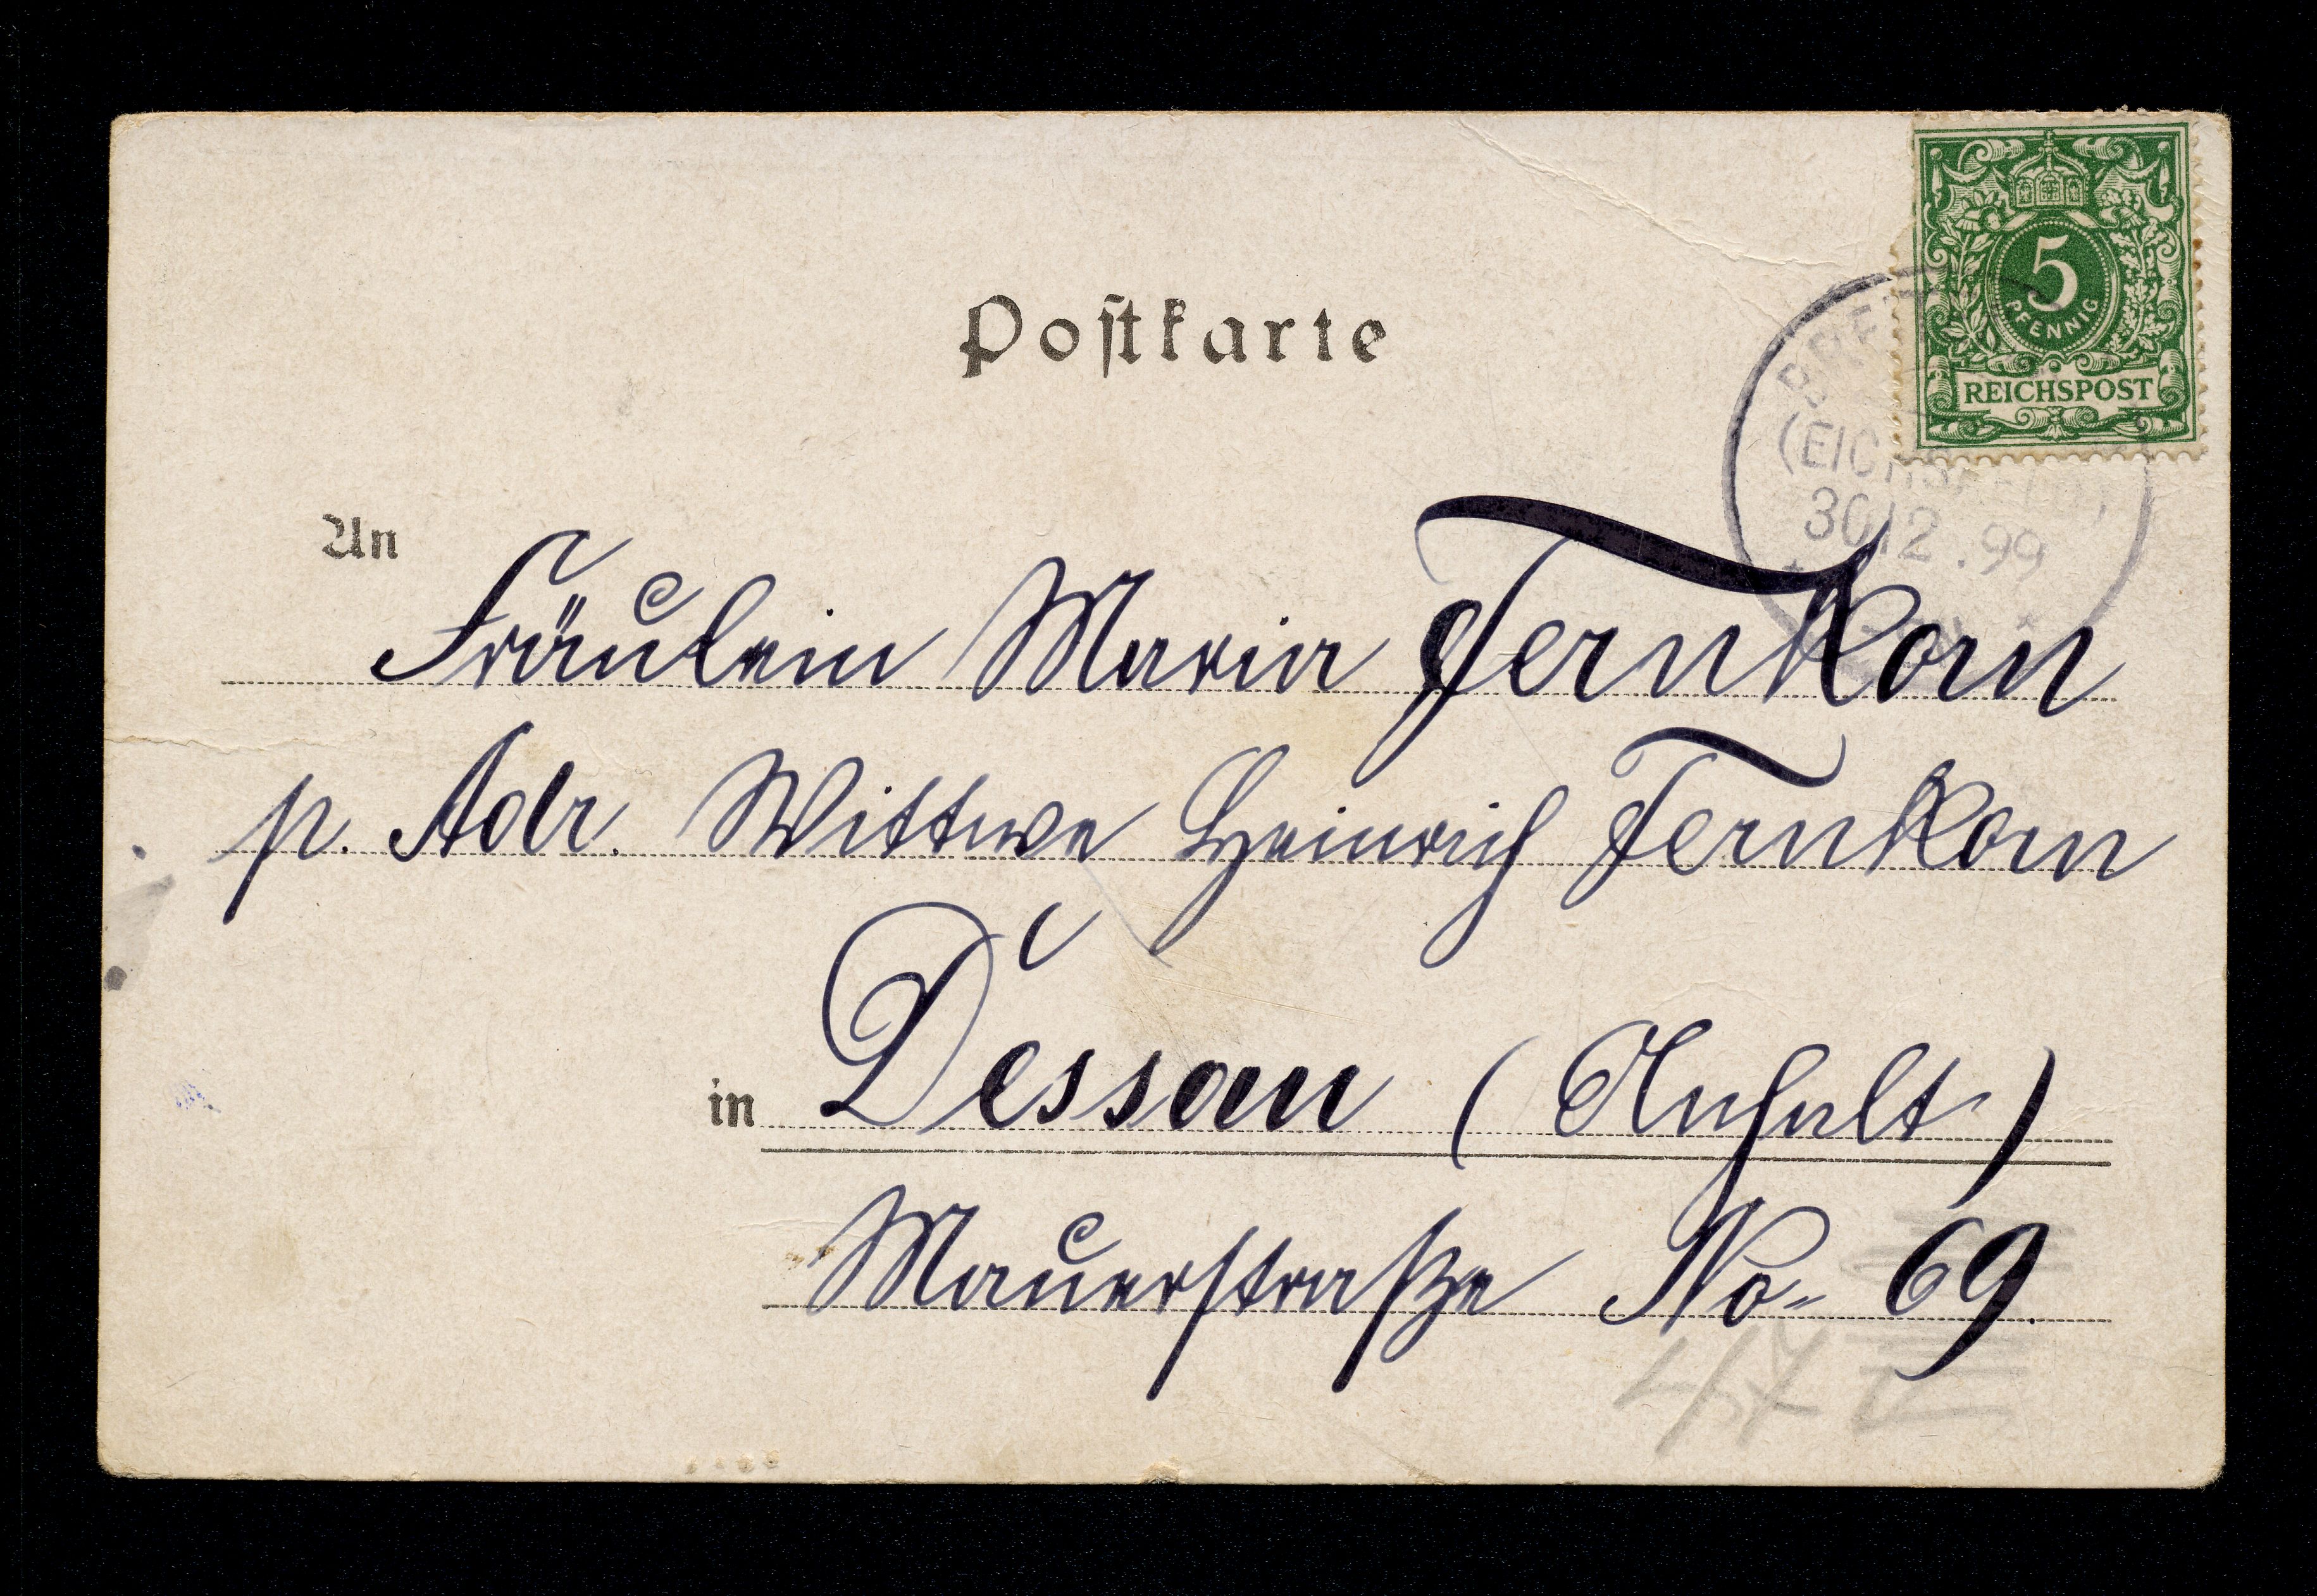 Postkarte
5
PFENNIG
REICHSPOST
(EICHSFELD)
30/12.99
An
Fräulein Maria Fernkorn
p. Adr. Wittwe Heinrich Fernkorn
in Dessau (Anhalt)
Mauerstraße No 69.